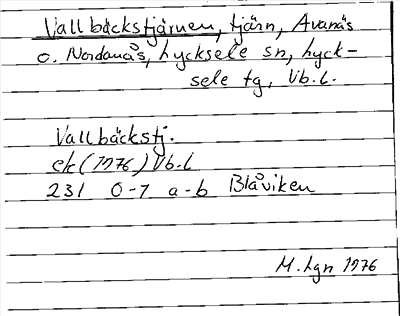 Vallbäckstjärnen, tjärn, Avanäs
o. Nordanås, Lycksele sn, Lyck-
sele tg, Vb.l.
Vallbäckstj.
ek (1976) Vb.l
231 0-1 a-b Blåviken
M. Lgn 1976